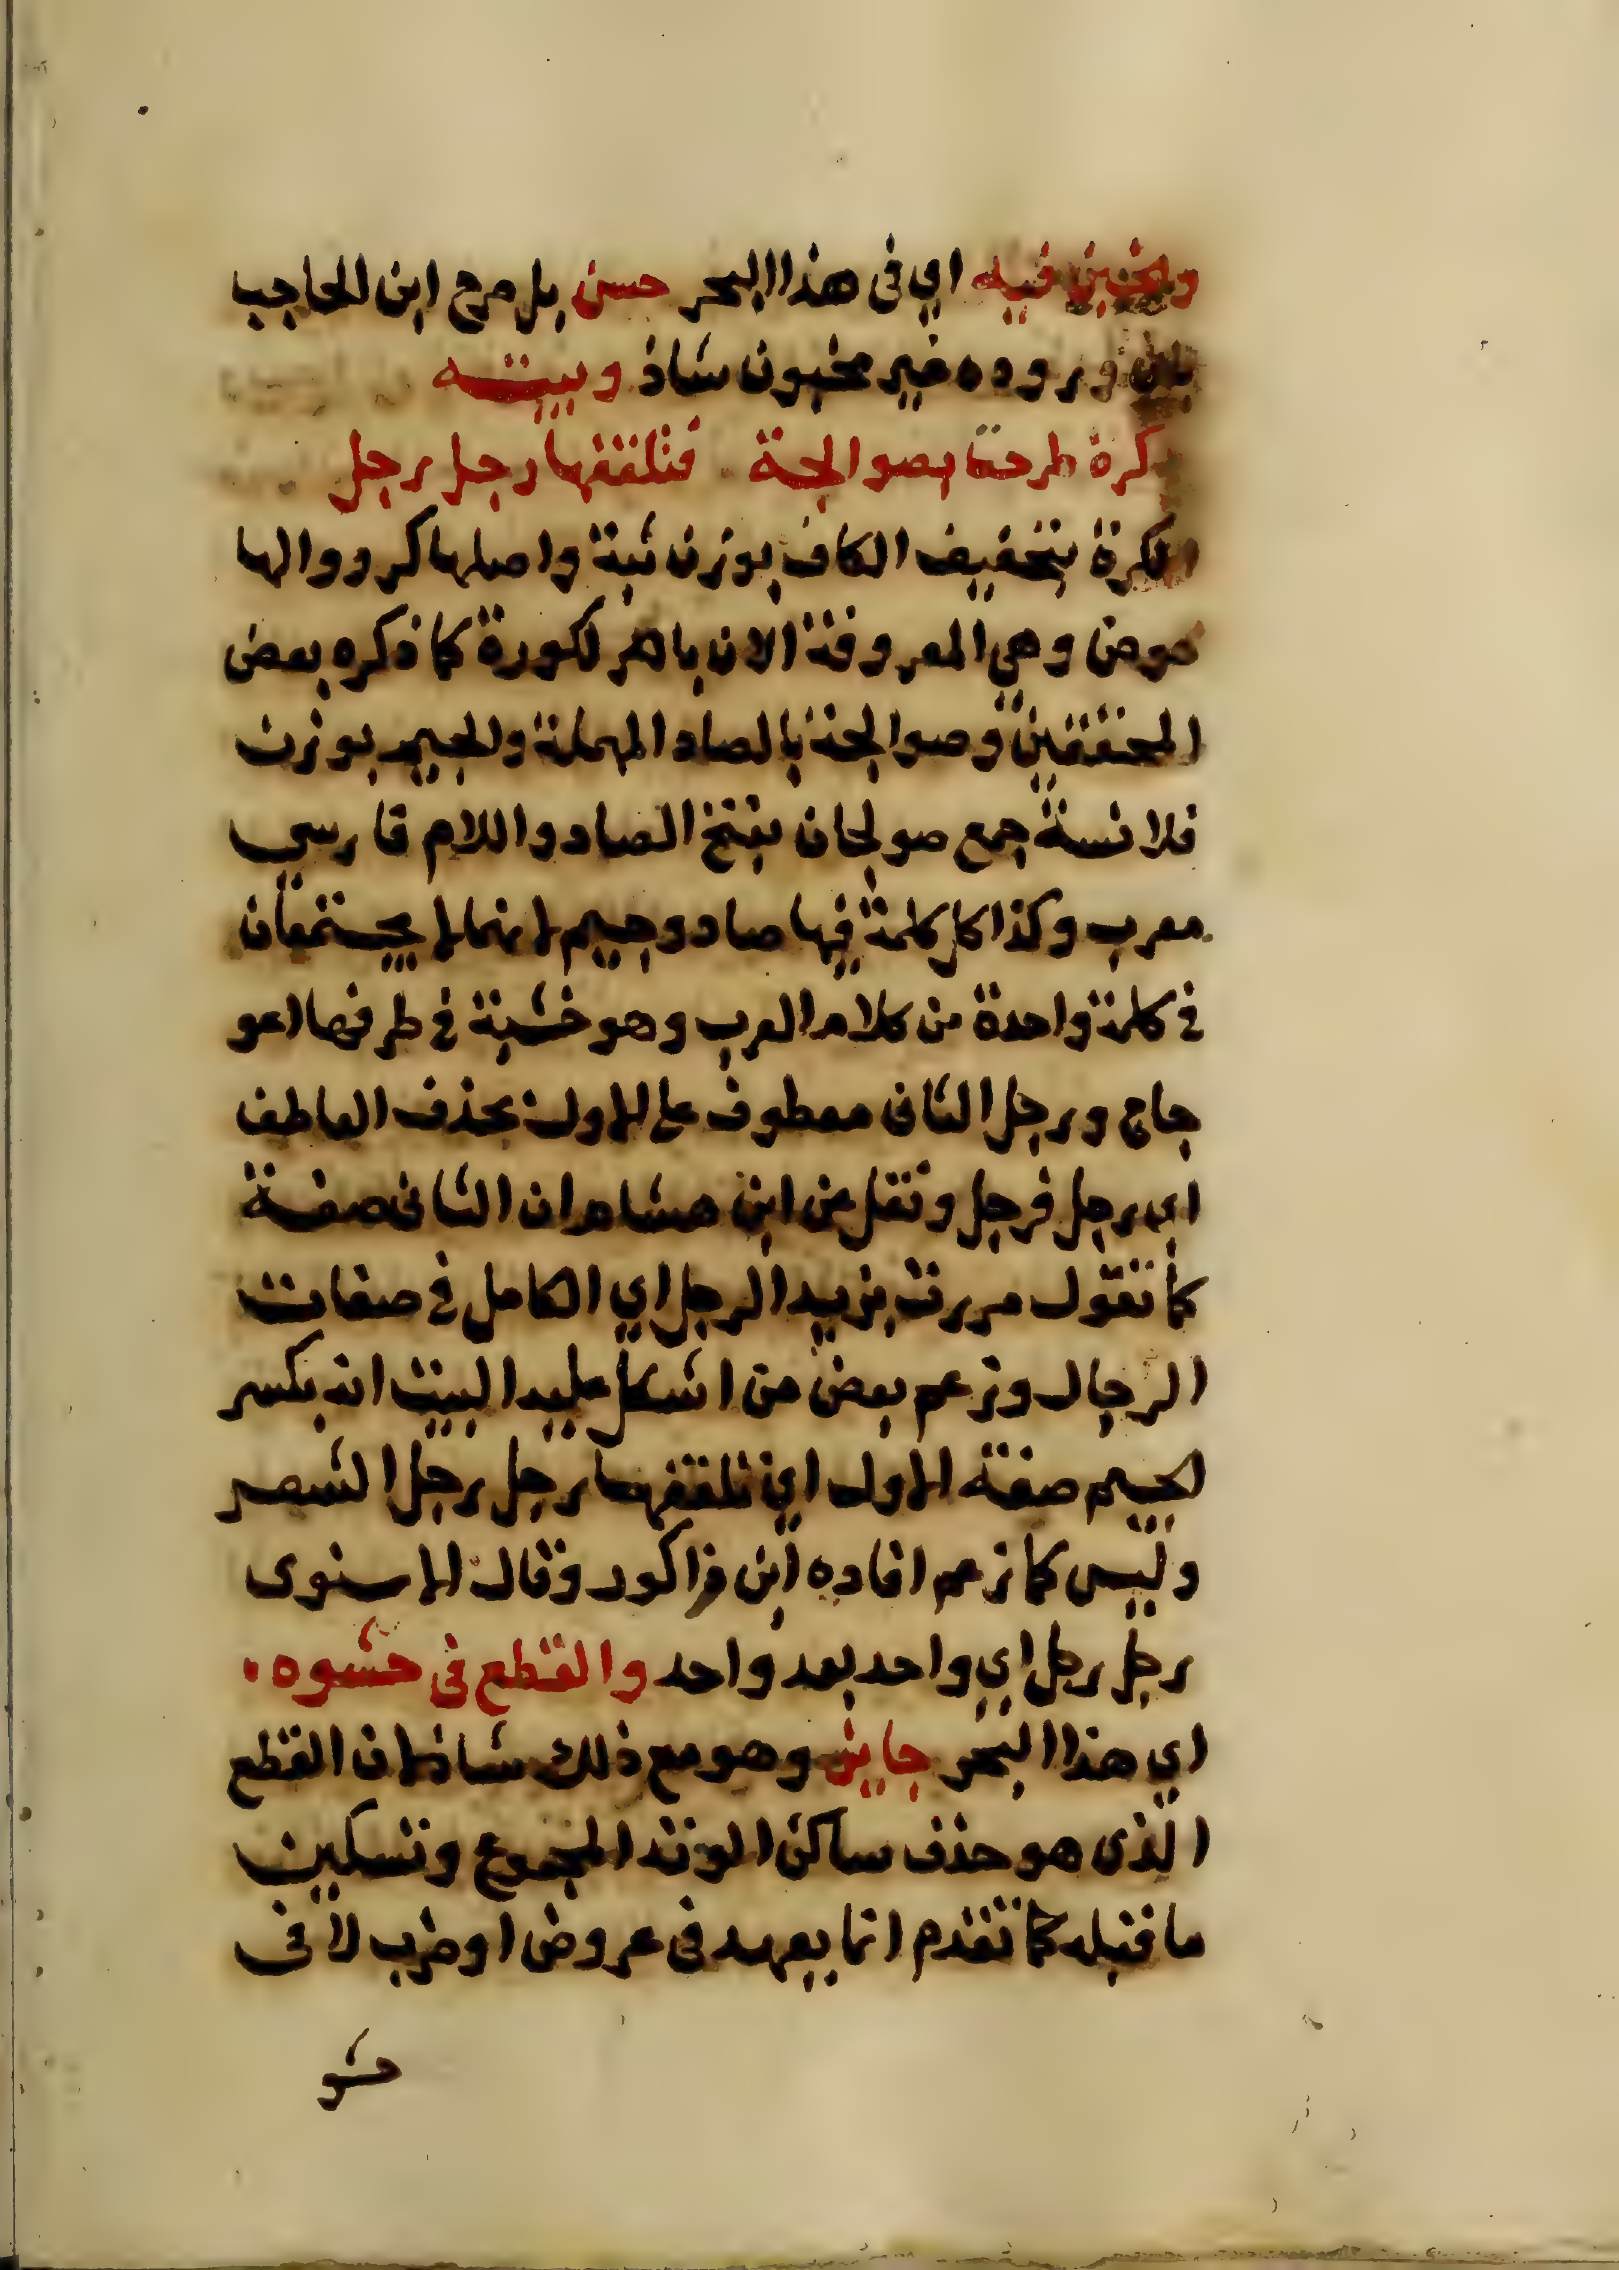 والخبن فيه اي فى هذا البحر حسن بل صرح ابن الحاجب
بان وروده غير مخبون شاذ وبيته
كرة طرحت بصوالجة فتلقفها رجل رجل
الكرة بتخفيف الكاف بوزن ثبة واصلها كرو والها
عوض وهي المعروفة الان باهر لكورة كما ذكره بعض
المحققين وصوالجة بالصاد المهملة والجيم بوزن
قلانسة جمع صولجان بفتح الصاد واللام فارسي
معرب وكذا كل كلمة فيها صاد وجيم لانهما لا يجتمعان
في كلمة واحدة من كلام العرب وهو خشبة في طرفها اعو
جاج ورجل الثانى معطوف على الاول بحذف العاطف
اي رجل فرجل ونقل عن ابن هشام ان الثانى صفة
كما تقول مررت بزيد الرجل اي الكامل في صفات
الرجال وزعم بعض من اشكل عليه البيت انه بكسر
الجيم صفة الاول اي تلقفها رجل رجل الشعر
وليس كما زعم افاده ابن زاكور وقال الاسنوى
رجل رجل اي واحد بعد واحد والقطع فى حشوه
اي هذا البحر جايز وهو مع ذلك شاذ لان القطع
الذى هو حذف ساكن الوتد المجموع وتسكين
ما قبله كما تقدم انما يعهد فى عروض او ضرب لا فى
حشو